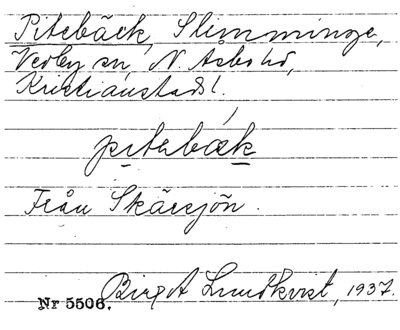 Pitebäck, Slimminge,
Vedby sn, N. Åsbo hd,
Kristianstads l.
pitebæk
Från Skärsjön.
Birgit Lundkvist, 1937.
Nr 5506.